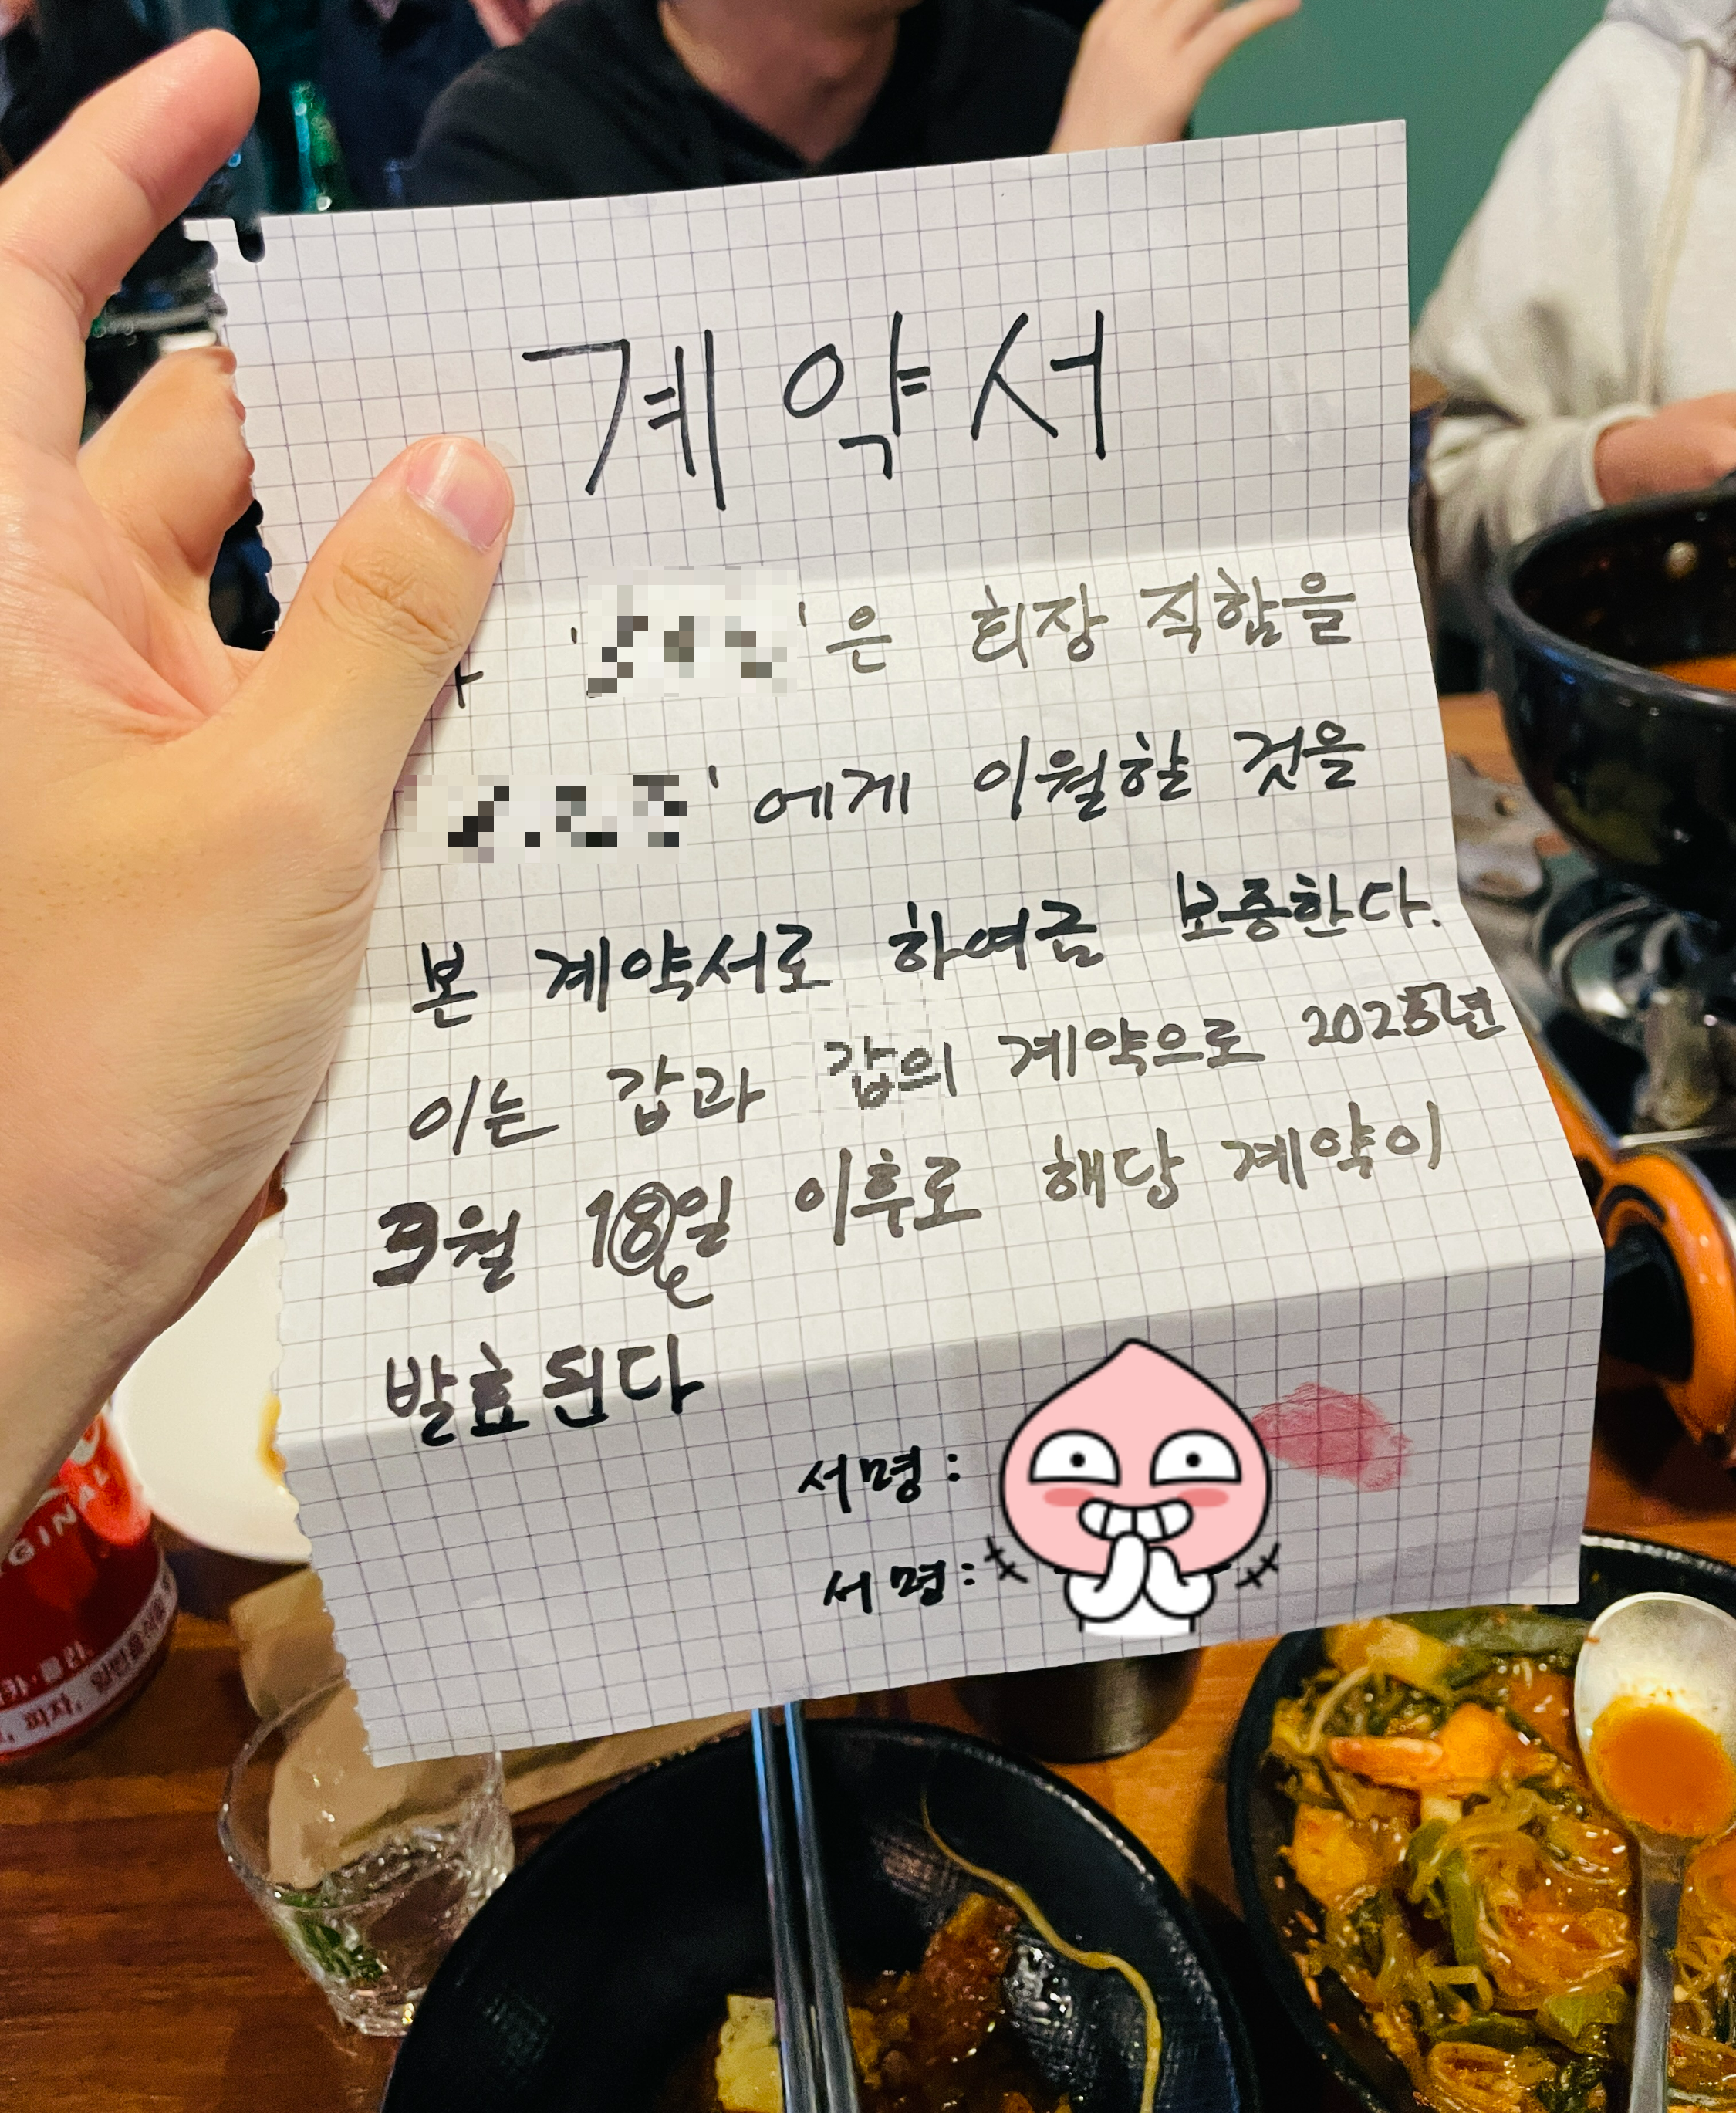 계약서
' '은 회장 직합을
'에게 이월할 것을
본 계약서로 하여금 보증한다.
이는 갑과 갑의 계약으로 2025년
3월 18일 이후로 해당 계약이
발효된다
서명:
서명:
GINAL
피자,